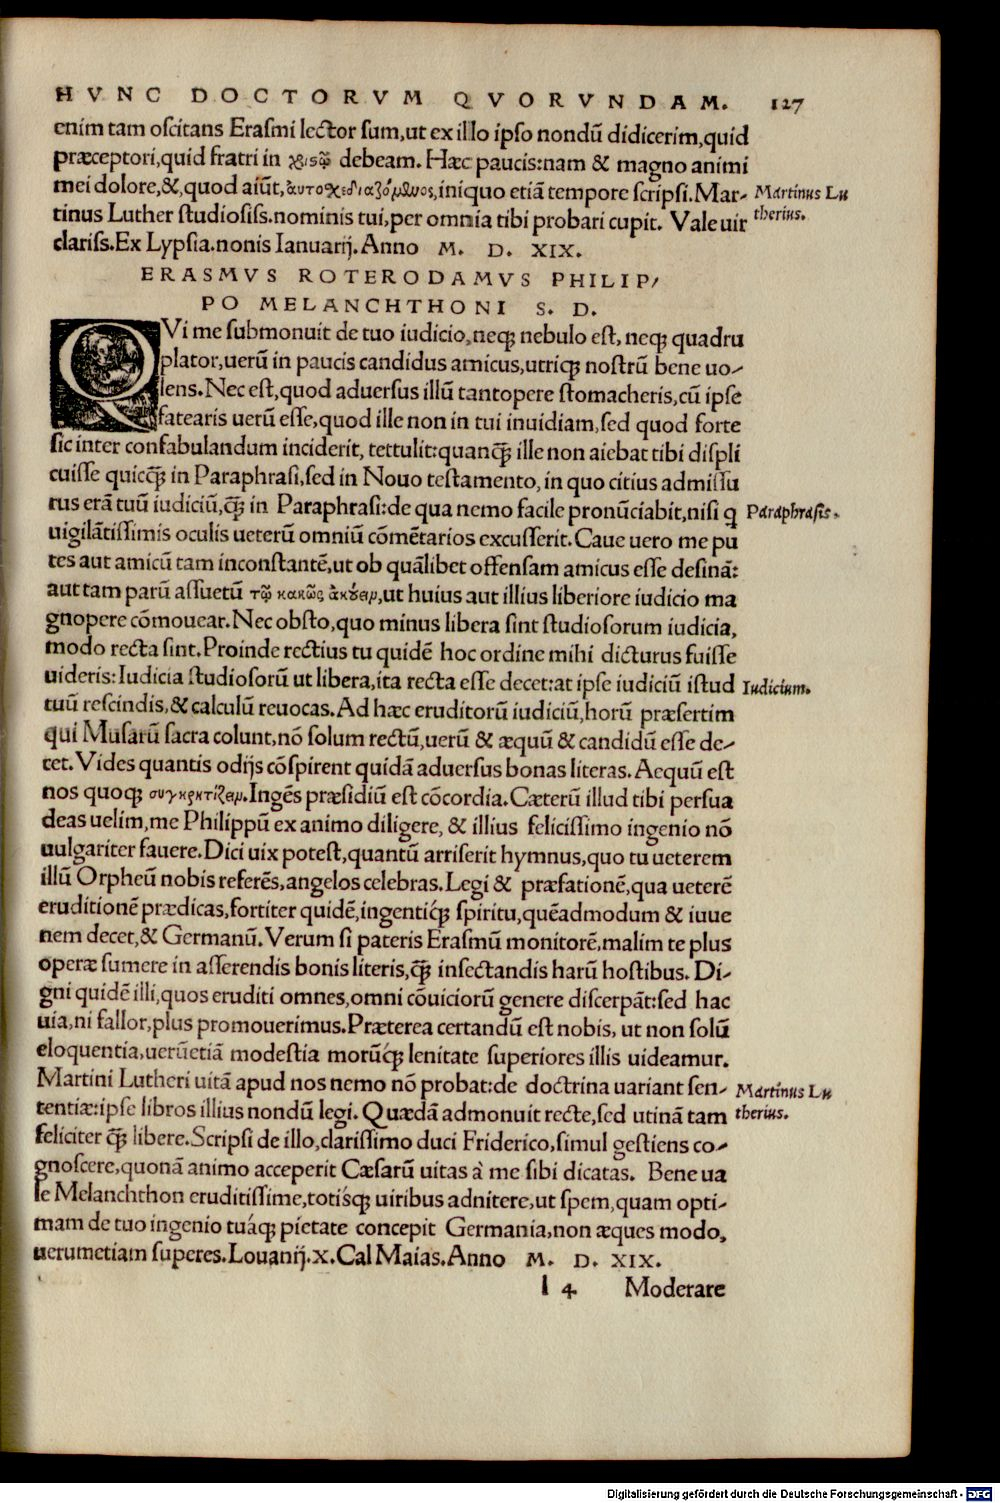 HVNC DOCTORVM QVORVNDAM. 127
enim tam oscitans Erasmi lector sum, ut ex illo ipso nondū didicerim, quid
præceptori, quid fratri in χριστῷ debeam. Hæc paucis: nam & magno animi
mei dolore, &, quod aiūt, αὐτοσχεδιαζόμενος, iniquo etiā tempore scripsi. Mar-
Martinus Lu
tinus Luther studiosiss. nominis tui, per omnia tibi probari cupit. Vale uir
therius.
clariss. Ex Lypsia. nonis Ianuarij. Anno M. D. XIX.
ERASMVS ROTERODAMVS PHILIP/
PO MELANCHTHONI S. D.
QVi me submonuit de tuo iudicio, neqꝫ nebulo est, neqꝫ quadru
plator, uerū in paucis candidus amicus, utriqꝫ nostrū bene uo-
lens. Nec est, quod aduersus illū tantopere stomacheris, cū ipse
fatearis uerū esse, quod ille non in tui inuidiam, sed quod forte
sic inter confabulandum inciderit, tettulit: quanqꝫ̄ ille non aiebat tibi displi
cuisse quicqꝫ̄ in Paraphrasi, sed in Nouo testamento, in quo citius admissu
rus erā tuū iudiciū, qꝫ̄ in Paraphrasi: de qua nemo facile pronūciabit, nisi q
Paraphrasis.
uigilātissimis oculis ueterū omniū cōmētarios excusserit. Caue uero me pu
tes aut amicū tam inconstantē, ut ob quālibet offensam amicus esse desinā:
aut tam parū assuetū τῷ κακῶς ἀκούειν, ut huius aut illius liberiore iudicio ma
gnopere cōmouear. Nec obsto, quo minus libera sint studiosorum iudicia,
modo recta sint. Proinde rectius tu quidē hoc ordine mihi dicturus fuisse
uideris: Iudicia studiosorū ut libera, ita recta esse decet: at ipse iudiciū istud
Iudicium.
tuū rescindis, & calculū reuocas. Ad hæc eruditorū iudiciū, horū præsertim
qui Musarū sacra colunt, nō solum rectū, uerū & æquū & candidū esse de-
cet. Vides quantis odijs cōspirent quidā aduersus bonas literas. Aequū est
nos quoqꝫ συγκρητίζειν. Ingēs præsidiū est cōcordia. Cæterū illud tibi persua
deas uelim, me Philippū ex animo diligere, & illius felicissimo ingenio nō
uulgariter fauere. Dici uix potest, quantū arriserit hymnus, quo tu ueterem
illū Orpheū nobis referēs, angelos celebras. Legi & præfationē, qua ueterē
eruditionē prædicas, fortiter quidē, ingentiq́ꝫ spiritu, quēadmodum & iuue
nem decet, & Germanū. Verum si pateris Erasmū monitorē, malim te plus
operæ sumere in asserendis bonis literis, qꝫ̄ insectandis harū hostibus. Di-
gni quidē illi, quos eruditi omnes, omni cōuiciorū genere discerpāt: sed hac
uia, ni fallor, plus promouerimus. Præterea certandū est nobis, ut non solū
eloquentia, uerūetiā modestia morūq́ꝫ lenitate superiores illis uideamur.
Martini Lutheri uitā apud nos nemo nō probat: de doctrina uariant sen-
Martinus Lu
tentiæ: ipse libros illius nondū legi. Quædā admonuit recte, sed utinā tam
therius.
feliciter qꝫ̄ libere. Scripsi de illo, clarissimo duci Friderico, simul gestiens co-
gnoscere, quonā animo acceperit Cæsarū uitas à me sibi dicatas. Bene ua
le Melanchthon eruditissime, totisq́ꝫ uiribus adnitere, ut spem, quam opti-
mam de tuo ingenio tuáqꝫ pietate concepit Germania, non æques modo,
uerumetiam superes. Louanij. x. Cal Maias. Anno M. D. XIX.
l 4 Moderare
Digitalisierung gefördert durch die Deutsche Forschungsgemeinschaft - DFG